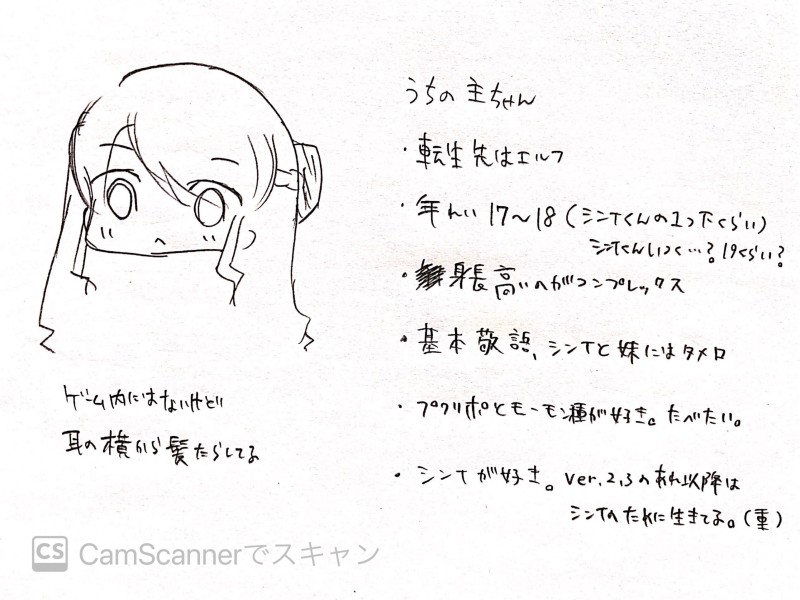 うちの主ちゃん
・転生先はエルフ
・年れい17〜18(シンイくんの1つ下くらい)
シンイくんいつく…?19くらい?
・身長高いのがコンプレックス
・基本敬語、シンイと妹にはタメ口
・プクリポとモーモン種が好き。たべたい。
・シンイが好き。ver.2.3のあれ以降は
シンイのために生きてる。(重)
ゲーム内にはないけど
耳の横から髪たらしてる
CS CamScannerでスキャン